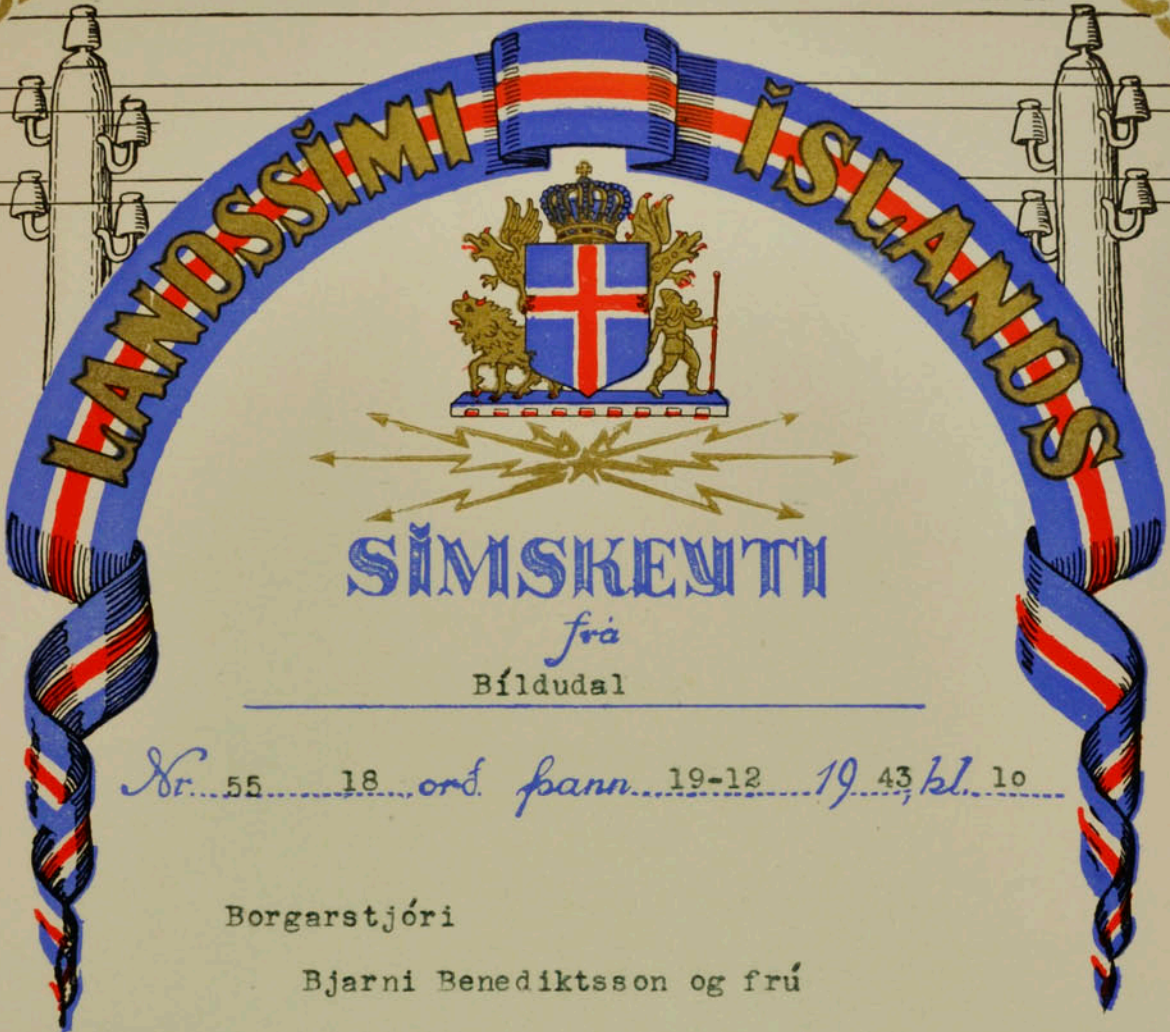 LANDSSÍMI ÍSLANDS
SÍMSKEYTI
frá
Bíldudal
Nr. 55 18 orð. þann 19-12 19 43, kl. 1o
Borgarstjóri
Bjarni Benediktsson og frú